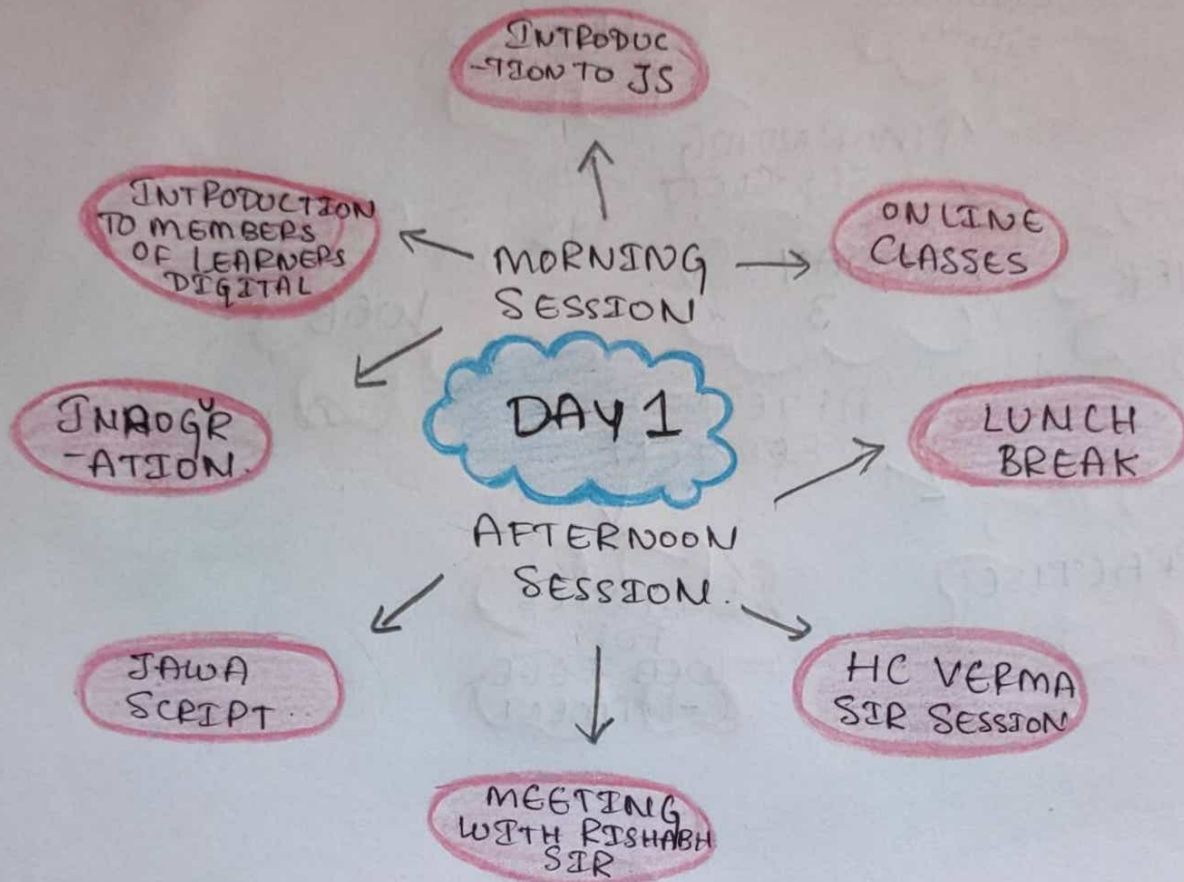 INTRODUC
-TION TO JS
INTRODUCTION
TO MEMBERS
OF LEARNERS
DIGITAL
MORNING
SESSION
ONLINE
CLASSES
INAOGUR
-ATION.
DAY 1
LUNCH
BREAK
AFTERNOON
SESSION.
JAWA
SCRIPT.
HC VERMA
SIR SESSION
MEETING
WITH RISHABH
SIR